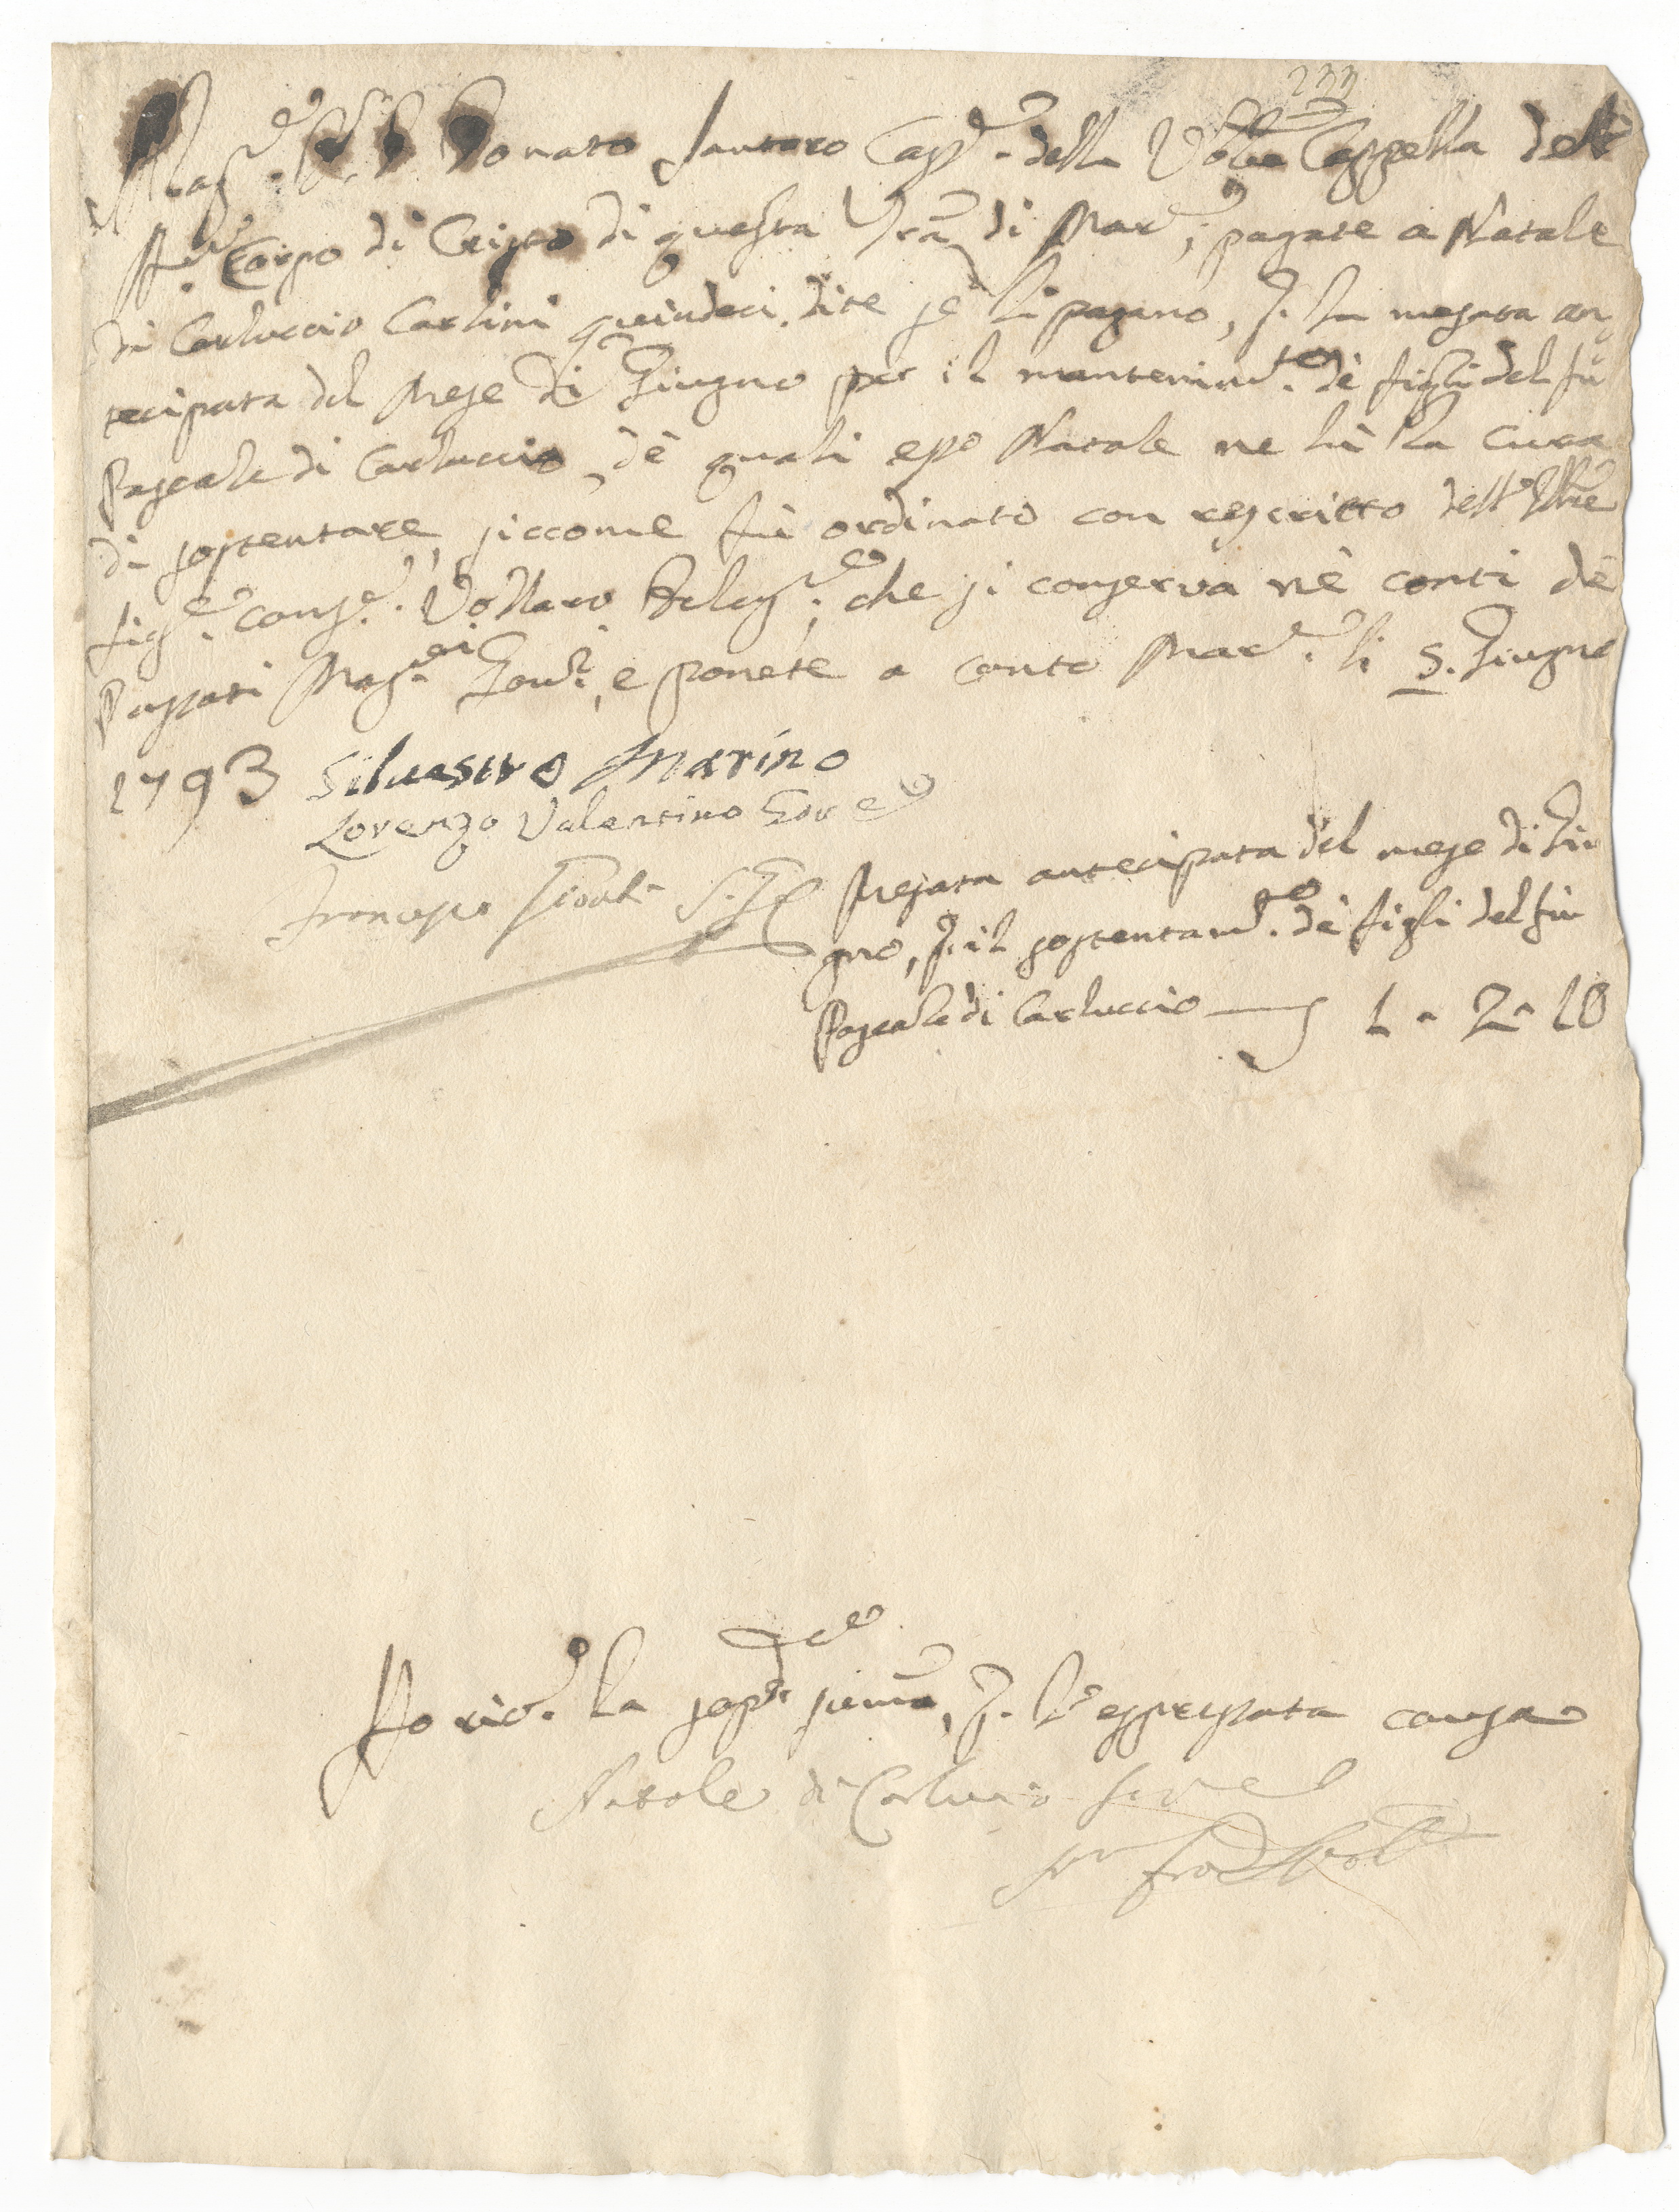 233
Mag.co Sig.r D. Donato Santoro Cass.re della Ven.le Cappella del
SS.mo Corpo di Cristo di questa Trã di Mar.e, pagate a Natale
di Carluccio Carlini quindeci, dite se li pagano, p. la mesata an
tecipata del Mese di Giugno per il mantenim.to de figli del fù
Pascale di Carluccio, dè quali esso Natale ne hà la cura
di sostentare, siccome fù ordinato con rescritto dell'Ill.re
Sig.re Cons.re Vollaro Deleg.to, che si conserva nè conti dè
Passati Mag.ci Gov.ri, e ponete a conto Mar.e li 5. Giugno
1793 Siluestro Marino
Lorenzo Valentino Gov.e
Francesco
Mesata antecipata del mese di Giu
gno, p. il sostentam.to de figli del fù
Pascale di Carluccio — 1 - 2 - 10
Ho ric.to la sop.a summa, p. l'espressata causa
Natale di Carluccio